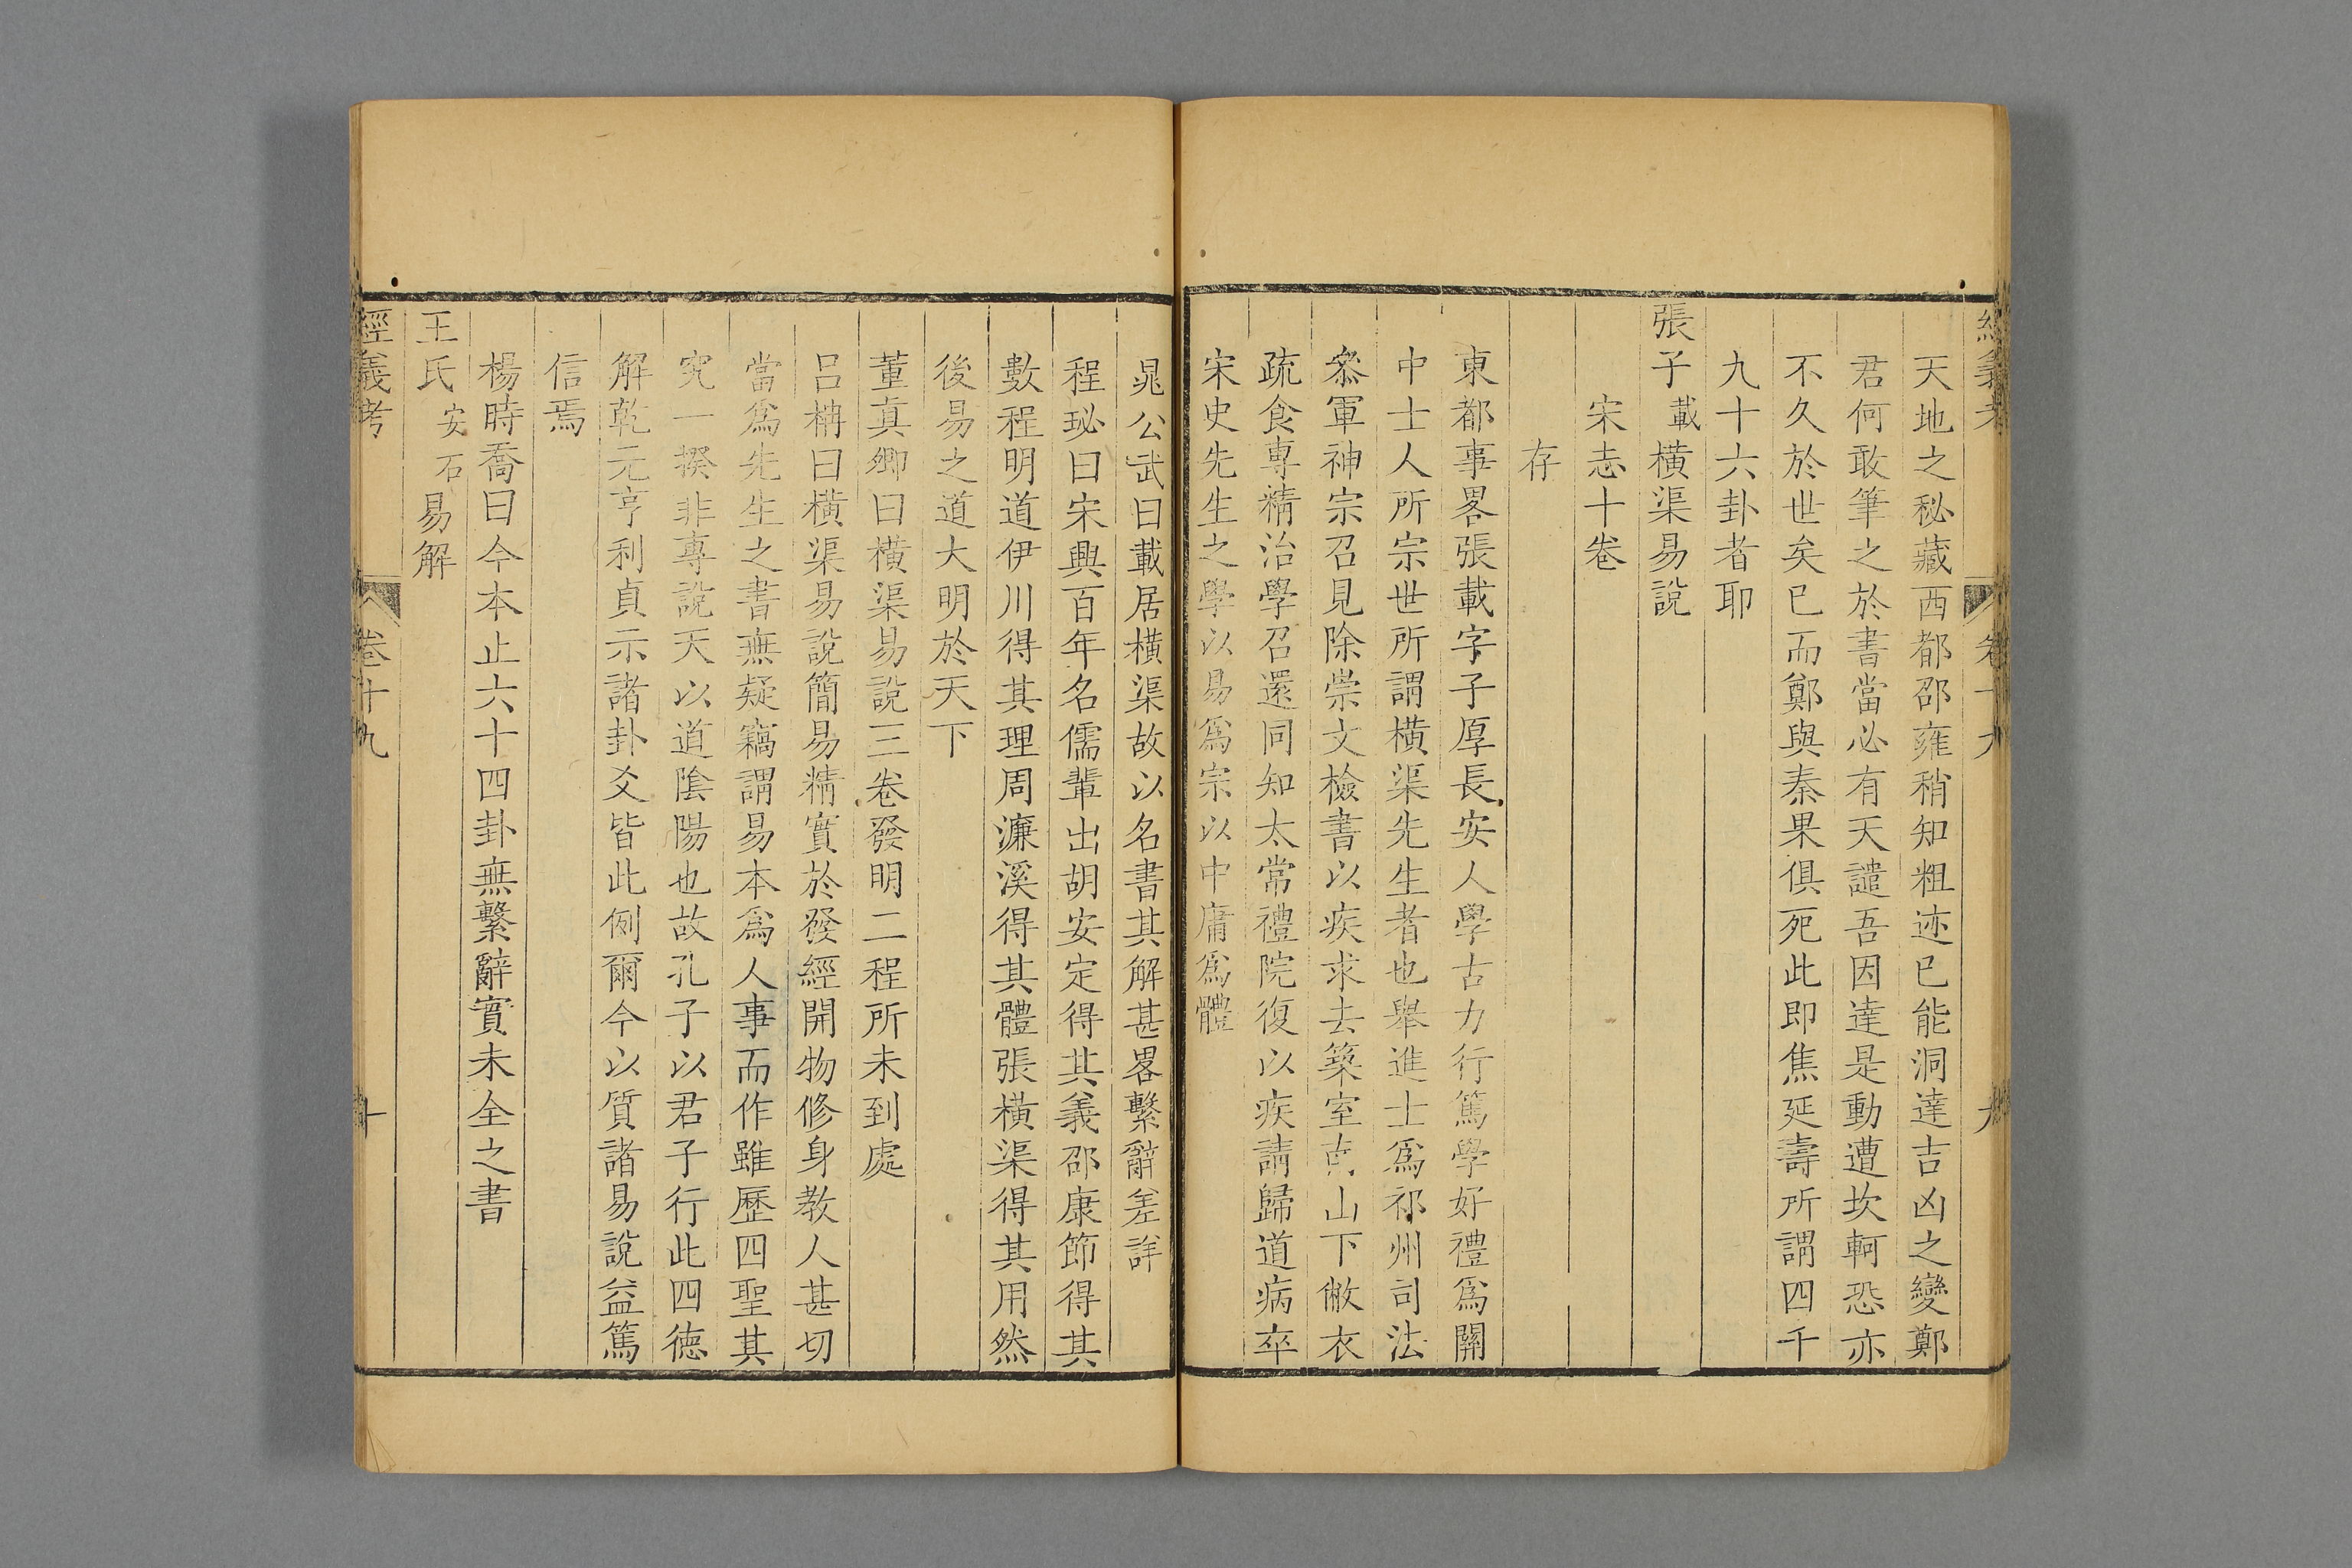 經義考 卷十九 九
天地之秘藏西都邵雍稍知粗迹已能洞達吉凶之變鄭
君何敢筆之於書當必有天譴吾因達是動遭坎軻恐亦
不久於世矣已而鄭與秦果俱死此即焦延壽所謂四千
九十六卦者耶
張子載橫渠易說
宋志十卷
存
東都事畧張載字子厚長安人學古力行篤學好禮爲關
中士人所宗世所謂橫渠先生者也舉進士爲祁州司法
叅軍神宗召見除崇文檢書以疾求去築室南山下敝衣
疏食專精治學召還同知太常禮院復以疾請歸道病卒
宋史先生之學以易爲宗以中庸爲體
晁公武曰載居橫渠故以名書其解甚畧繫辭差詳
程珌曰宋興百年名儒輩出胡安定得其義邵康節得其
數程明道伊川得其理周濂溪得其體張橫渠得其用然
後易之道大明於天下
董眞卿曰橫渠易說三卷發明二程所未到處
呂柟曰橫渠易說簡易精實於發經開物修身敎人甚切
當爲先生之書無疑竊謂易本爲人事而作雖歷四聖其
究一揆非專說天以道陰陽也故孔子以君子行此四德
解乾元亨利貞示諸卦爻皆此例爾今以質諸易說益篤
信焉
楊時喬曰今本止六十四卦無繫辭實未全之書
王氏安石易解
經義考 卷十九 十